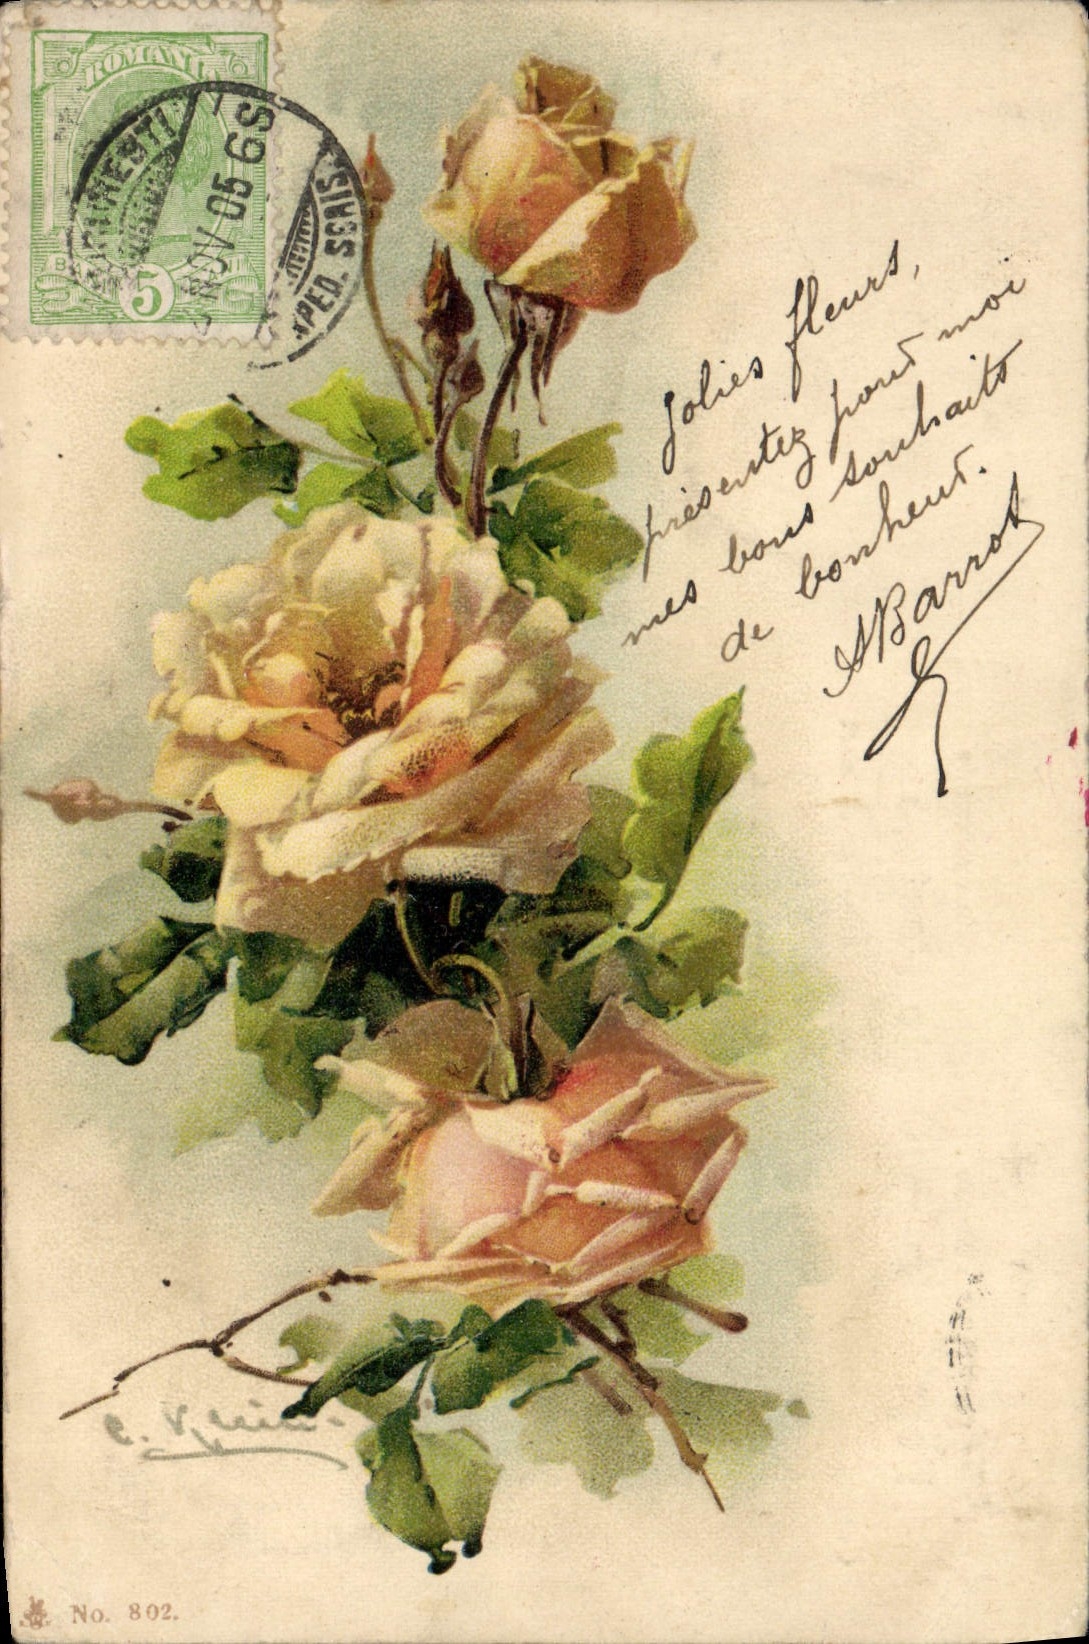 ROMANIA
5
NOV 05 6S
EXPED. SCRIS
Jolies fleurs,
présentez pour moi
mes bons souhaits
de bonheur.
ABarrot
C. Klein.
No. 802.